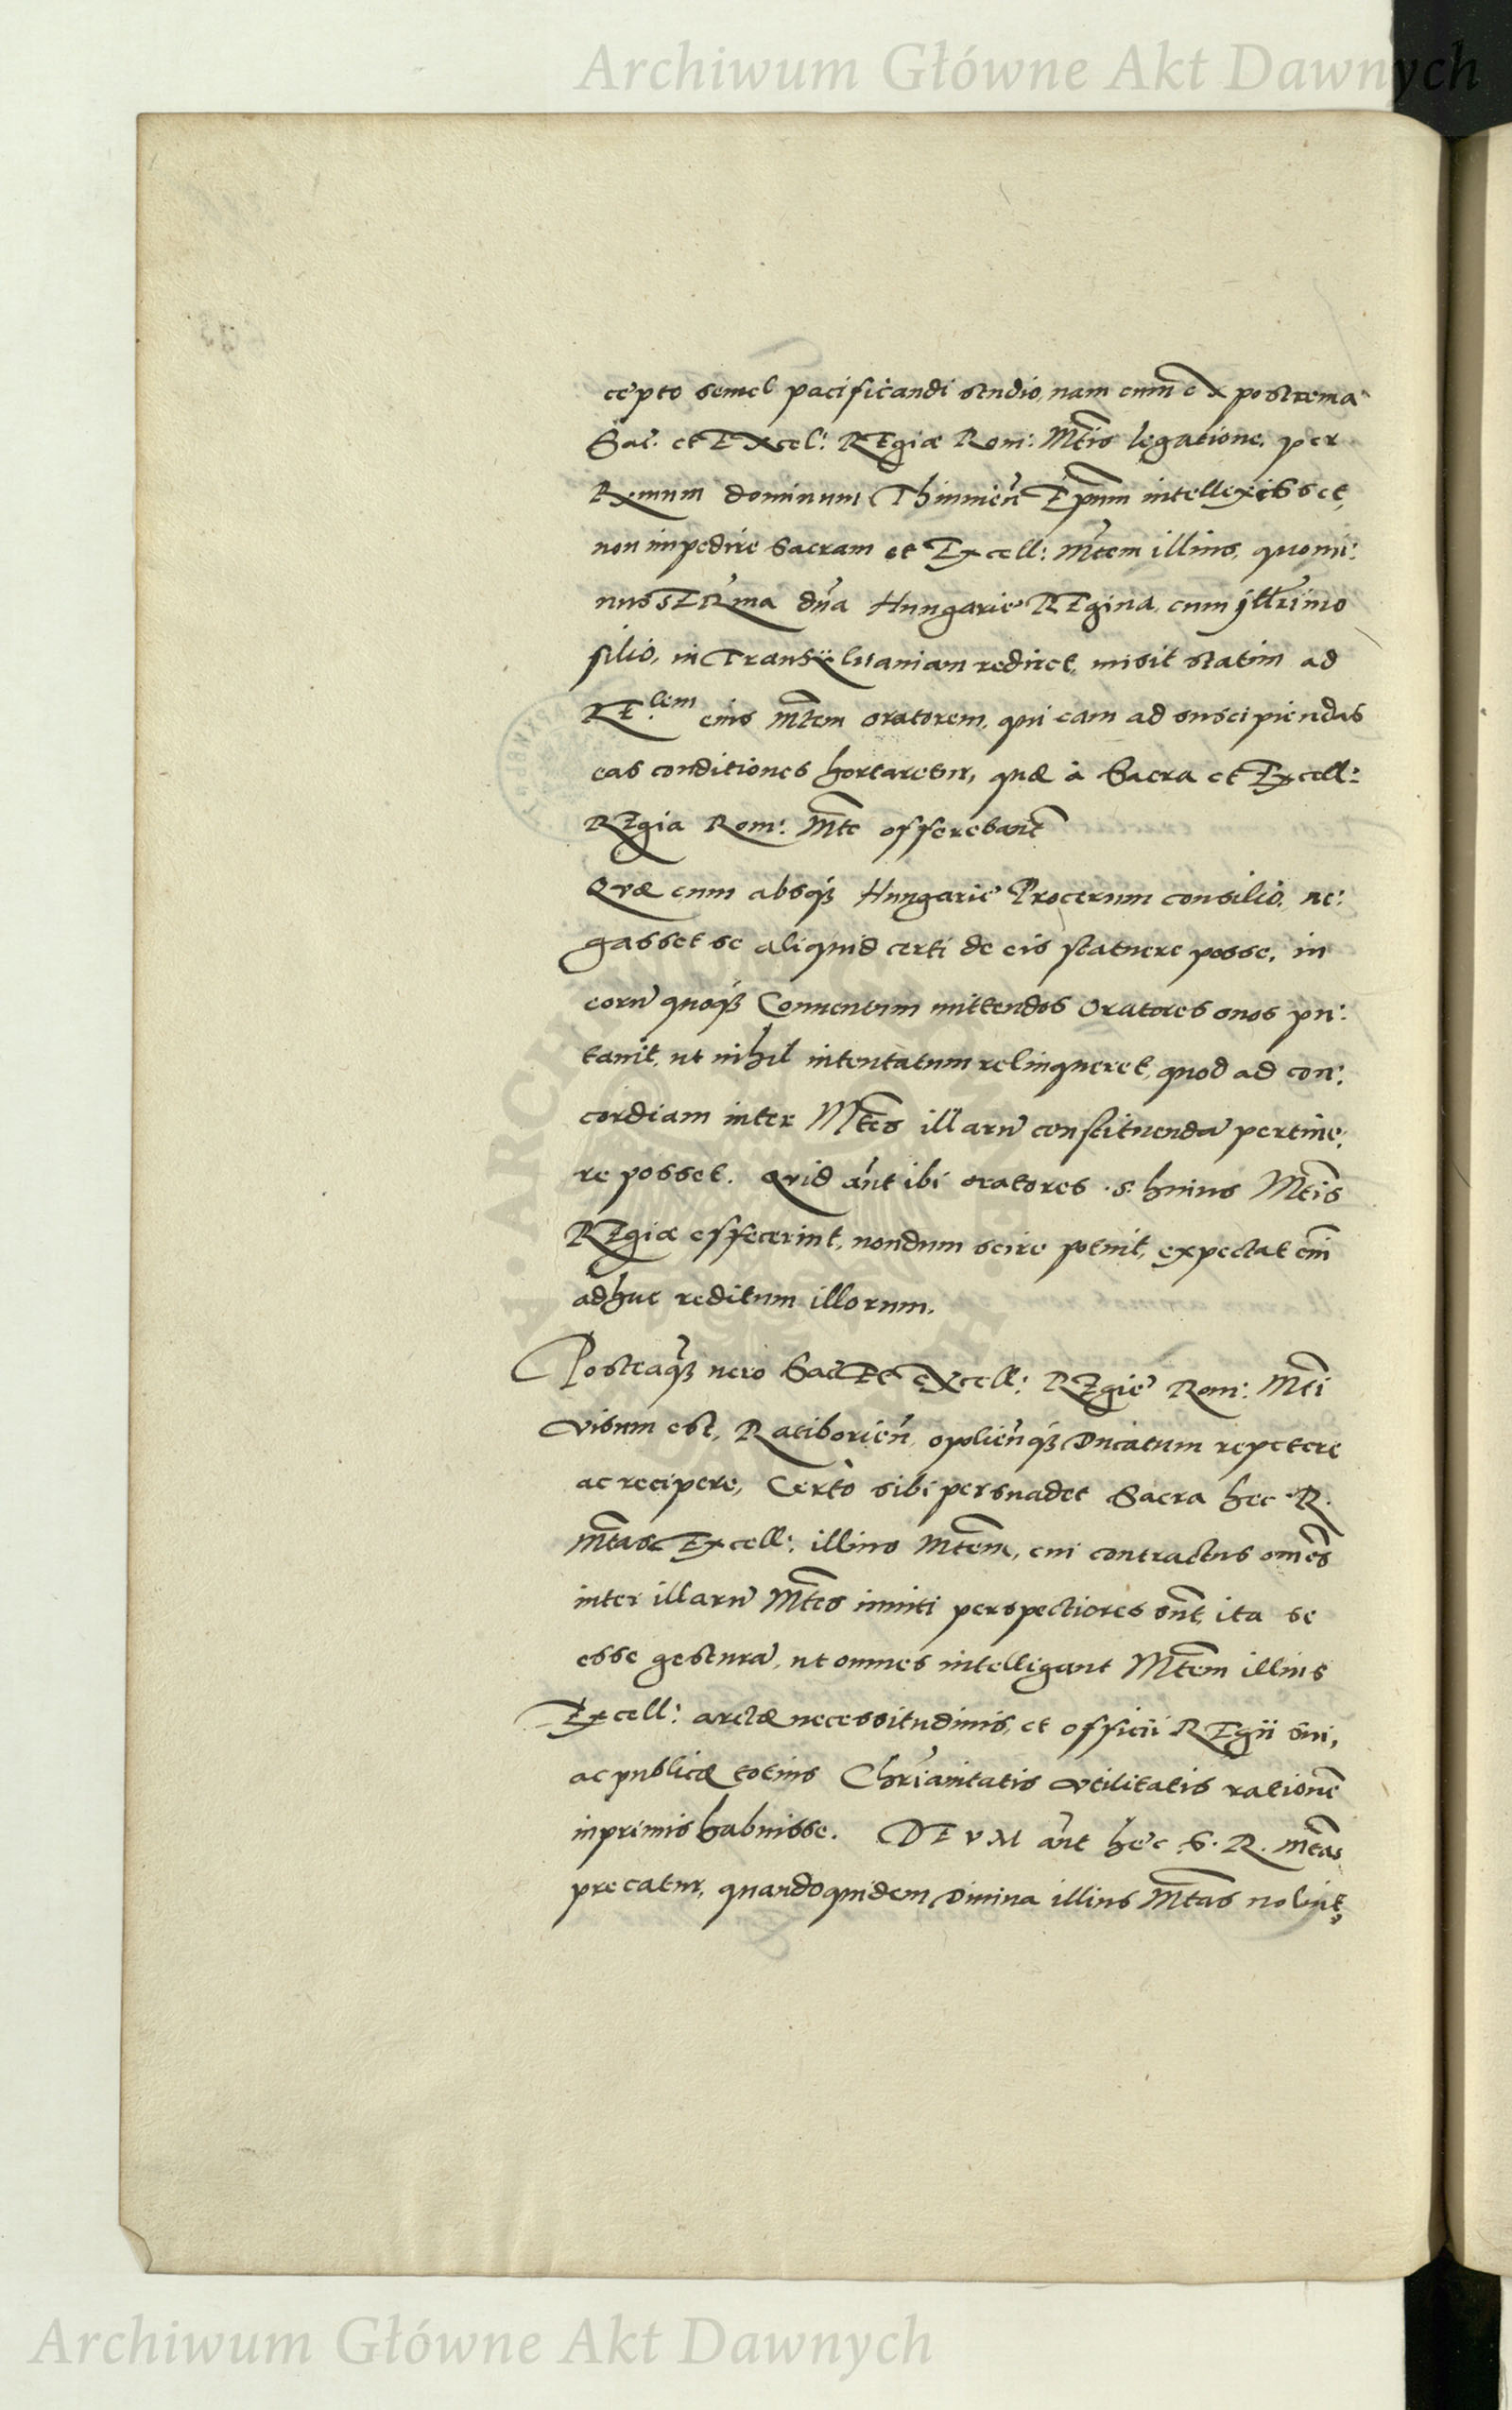 Archiwum Główne Akt Dawnych
cepto semel pacificandi studio, nam cum ex postrema
Sac: et Excel: REgiæ Rom: Mtis legatione, per
Rxmum dominum Thinnieñ Epum intellexisset,
non impedire Sacram et Excell: Mtem illius, quomi:
nus SERma dña Hungarie REgina, cum Illrimo
filio, in Transÿluaniam rediret, misit statim ad
RE:lem eius Mtem oratorem, qui eam ad suscipiendas
eas conditiones hortaretur, quæ à Sacra et Excell:
REgia Rom: Mte offerebant
Quæ cum absq3 Hungarie Procerum consilio, ne:
gasset se aliquid certi de eis statuere posse, in
eorũ quoq3 Conuentum mittendos Oratores suos pu:
tauit, ut nihil intentatum relinqueret, quod ad con:
cordiam inter Mtes illarũ constituendã pertine:
re posset. Quid aũt ibi oratores .S. huius Mtis
REgiæ effecerint, nondum scire potuit, expectat em̃
adhuc reditum illorum.
Posteaq3 uero Sac Et eXcell: REgie Rom: Mti
visum est, Ratiborieñ, opolieñq3 Ducatum repetere
ac recipere, Certò sibi persuadet Sacra hec R.
Mtas Excell: illius Mtem, cui contractus om̃es
inter illarũ Mtes initi perspectiores sũt, ita se
esse gesturã, ut omnes intelligant Mtem illius
Excell: arctæ necessitudinis, et officii REgii sui,
ac publicæ totius Chrianitatis vtilitatis rationẽ
inprimis habuisse. DEVM aũt hec .S. R. Mtas
precatur, quandoquidem Diuina illius Mtas noluit,
Archiwum Główne Akt Dawnych